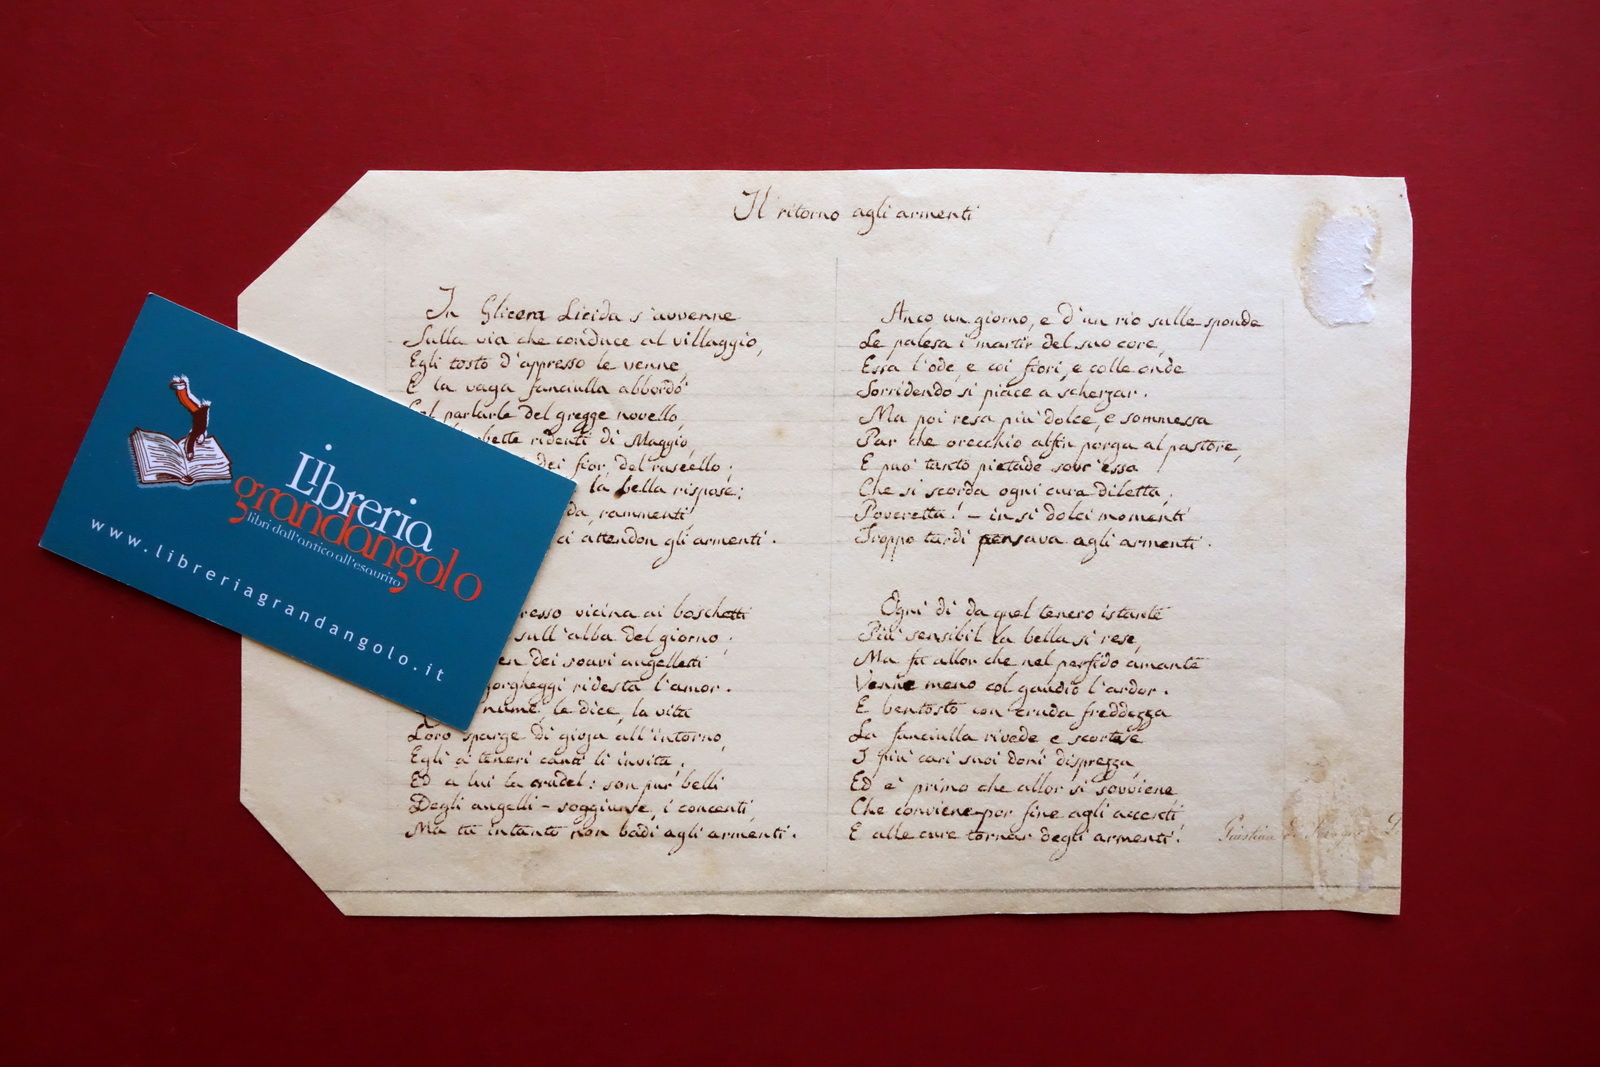 Il ritorno agli armenti
In Glicera Licida s'avvenne
Sulla via che conduce al villaggio,
Egli tosto d'appresso le venne,
E la vaga fanciulla abbordò
parlarle del gregge novello,
ridenti di Maggio,
dei fior, del ruscello;
la bella rispose:
rammenti
ci attendon gli armenti.
vicina ai boschetti
sull'alba del giorno,
dei soavi angelletti
gorgheggi ridesta l'amor.
nume, le dice, la vita
Loro sparge di gioja all'intorno,
Egli a teneri canti li invita,
Ed a lui la crudel: son pur belli
Degli augelli - soggiunse, i concenti,
Ma tu intanto non badi agli armenti.
Anco un giorno, e d'un rio sulle sponde
Le palesa i martir del suo core,
Essa l'ode, e coi fiori, e colle onde
Sorridendo si piace a scherzar.
Ma poi resa più dolce, e sommessa
Par che orecchio alfin porga al pastore,
E può tanto pietade sovr'essa
Che si scorda ogni cura diletta,
Poveretta! - in sì dolci momenti
Troppo tardi pensava agli armenti.
Ogni dì da quel tenero istante
Più sensibil la bella si rese,
Ma fu allor che nel perfido amante
Venne meno col gaudio l'ardor.
E bentosto con cruda freddezza
La fanciulla rivede e scortese
I più cari suoi doni disprezza
Ed è primo che allor si sovviene
Che conviene por fine agli accenti
E alle cure tornar degli armenti.
Giustina di
Libreria
grandangolo
libri dall'antico all'esaurito
www.libreriagrandangolo.it